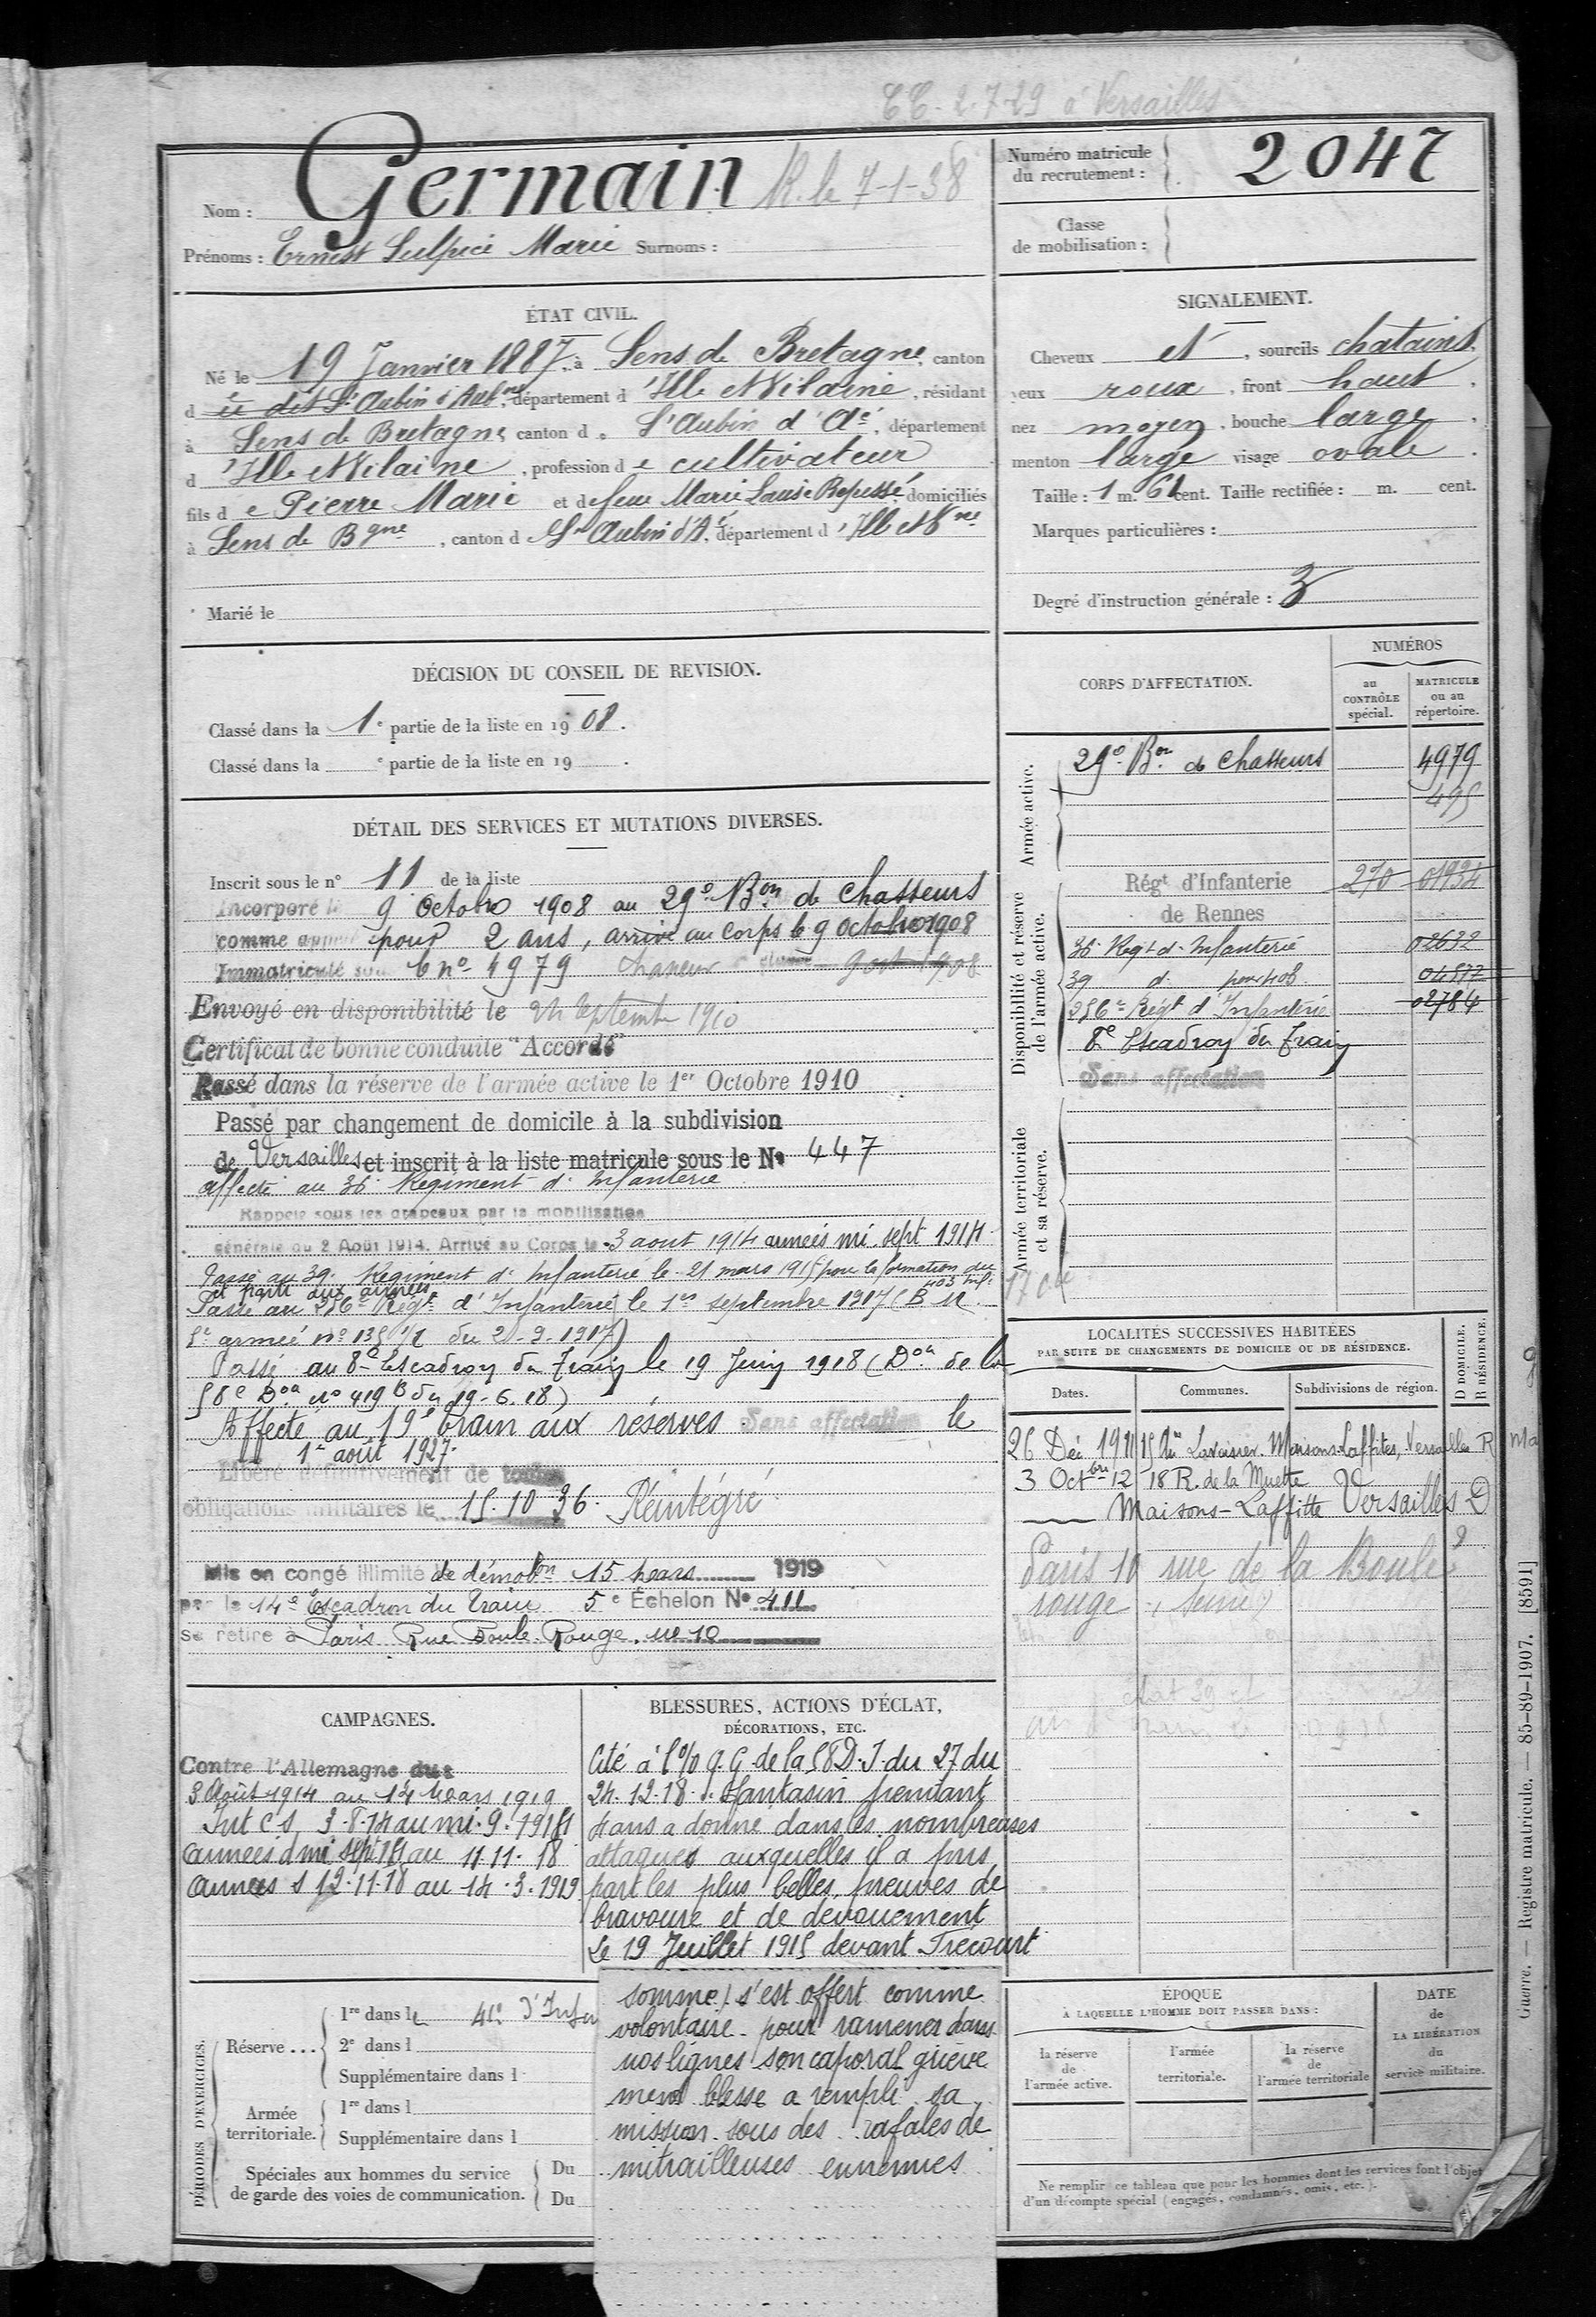 2-7-29 à Versailles
Nom : Germain R. le 7-1-38
Prénoms : Ernest Sulpice Marie Surnoms :
Numéro matricule du recrutement : 2047
Classe de mobilisation :
ÉTAT CIVIL.
Né le 19 Janvier 1887, à Sens de Bretagne, canton
d dit St Aubin d'Aubné, département d'Ille et Vilaine, résidant
à Sens de Bretagne canton de St Aubin d'Aé, département
d'Ille et Vilaine, profession de cultivateur
fils de Pierre Marie et de feue Marie Louise domiciliés
à Sens de Bgne, canton d St Aubin d'A, département d'Ille et Vne
Marié le
SIGNALEMENT.
Cheveux et, sourcils chatains,
yeux roux, front haut,
nez moyen, bouche large,
menton large visage ovale.
Taille : 1 m. 61 cent. Taille rectifiée : m. cent.
Marques particulières :
Degré d'instruction générale : 3
DÉCISION DU CONSEIL DE REVISION.
Classé dans la 1e partie de la liste en 1908.
Classé dans la e partie de la liste en 19 .
DÉTAIL DES SERVICES ET MUTATIONS DIVERSES.
Inscrit sous le n° 11 de la liste
Incorporé le 9 Octobre 1908 au 29e Bon de Chasseurs
comme appelé pour 2 ans, arrivé au corps le 9 octobre 1908
Immatriculé sous le no 4979
Envoyé en disponibilité le 24 Septembre 1910
Certificat de bonne conduite "Accordé"
Passé dans la réserve de l'armée active le 1er Octobre 1910
Passé par changement de domicile à la subdivision
de Versailles et inscrit à la liste matricule sous le No 447
affecté au 36 Régiment d'Infanterie
Rappelé sous les drapeaux par la mobilisation
générale du 2 Août 1914. Arrivé au Corps le 3 aout 1914 armées mi. sept 1914
Passé au 39. Régiment d'Infanterie le 21 mars 1915 pour la formation du 403 Inf.
et parti aux armées
Passé au 256e Régt d'Infanterie le 1er septembre 1917 (B M.
armée no 135 du 20-9-1917)
Passé au 8e Escadron du Train le 19 Juin 1918 (Don de la
58e Don No 419 B du 19-6.18)
Affecté au 19e train aux réserves Sans affectation le
1er août 1927.
Libéré définitivement de toutes
obligations militaires le 15.10 36. Réintégré
Mis en congé illimité de démobon 15 mars 1919
par le 14e Escadron du Train 5e Échelon No 411
se retire à Paris Rue Boule Rouge. no 10
CORPS D'AFFECTATION.
NUMÉROS
au CONTRÔLE spécial.
MATRICULE ou au répertoire.
Armée active.
29e Bon de Chasseurs 4979
495
Disponibilité et réserve de l'armée active.
Régt d'Infanterie de Rennes 270 01934
36 Régt d'Infanterie 02632
39 d° pour 403
256e Régt d'Infanterie 02784
8e Escadron du Train
Sans affectation
Armée territoriale et sa réserve.
LOCALITÉS SUCCESSIVES HABITÉES
PAR SUITE DE CHANGEMENTS DE DOMICILE OU DE RÉSIDENCE.
Dates. Communes. Subdivisions de région. D DOMICILE. R RÉSIDENCE.
26 Déc 1911 15 Lavoisier. Maisons-Laffitte, Versailles R
3 Octbre 12 18 R. de la Muette
Maisons-Laffitte Versailles D
Paris 10 rue de la Boule
rouge (Seine)
CAMPAGNES.
Contre l'Allemagne du
3 Août 1914 au 14 Mars 1919
Int C S. 3-8-14 au mi-9-1914
armées d mi sept 14 au 11-11-18
armées s 12-11-18 au 14-3-1919
BLESSURES, ACTIONS D'ÉCLAT,
DÉCORATIONS, ETC.
Cité à l'O/ Q. G. de la 58 D. I. du 27 du
24.12.18. Fantassin pendant
4 ans a donné dans les nombreuses
attaques auxquelles il a pris
part les plus belles preuves de
bravoure et de devouement
Le 19 Juillet 1915 devant Frécourt
somme) s'est offert comme
volontaire pour ramener dans
nos lignes son caporal grieve
ment blessé a rempli sa
mission sous des rafales de
mitrailleuses ennemies
PÉRIODES D'EXERCICES.
Réserve... 1re dans le 41e d'Infn
2e dans l
Supplémentaire dans l
Armée territoriale. 1re dans l
Supplémentaire dans l
Spéciales aux hommes du service
de garde des voies de communication. Du
Du
ÉPOQUE
À LAQUELLE L'HOMME DOIT PASSER DANS :
la réserve de l'armée active.
l'armée territoriale.
la réserve de l'armée territoriale
DATE de LA LIBÉRATION du service militaire.
Ne remplir ce tableau que pour les hommes dont les services font l'objet
d'un décompte spécial (engagés, condamnés, omis, etc.).
Guerre. — Registre matricule. — 85-89-1907. [8591]